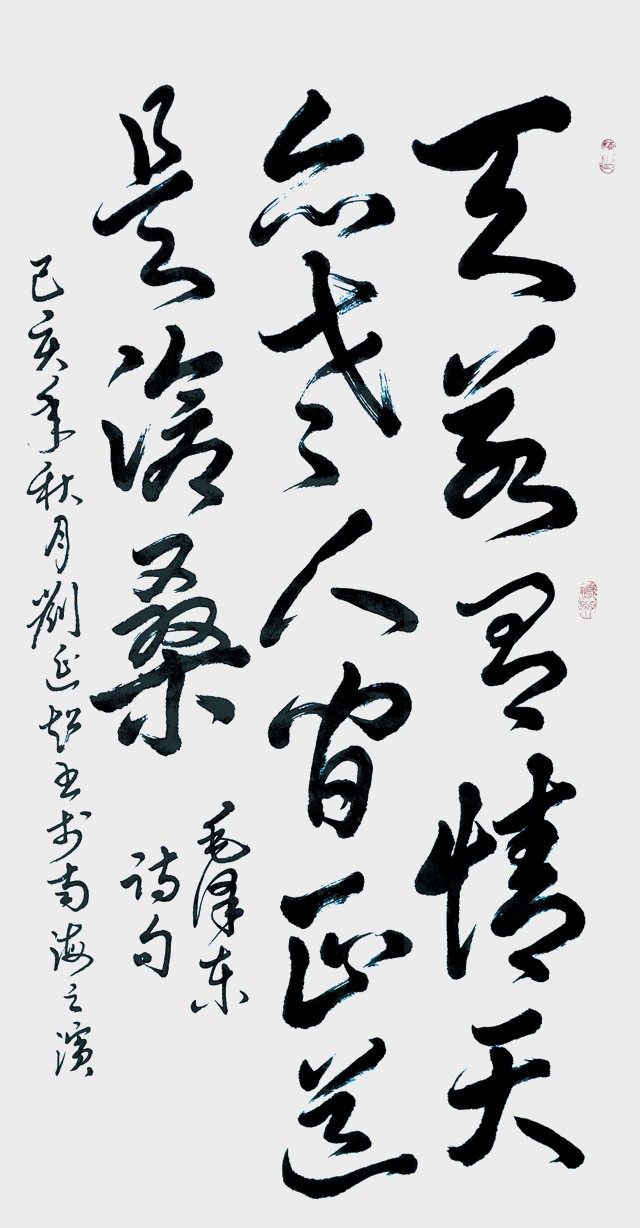 天若有情天
亦老人间正道
是沧桑
毛泽东
诗句
己亥年秋月刘延超书于南海之滨